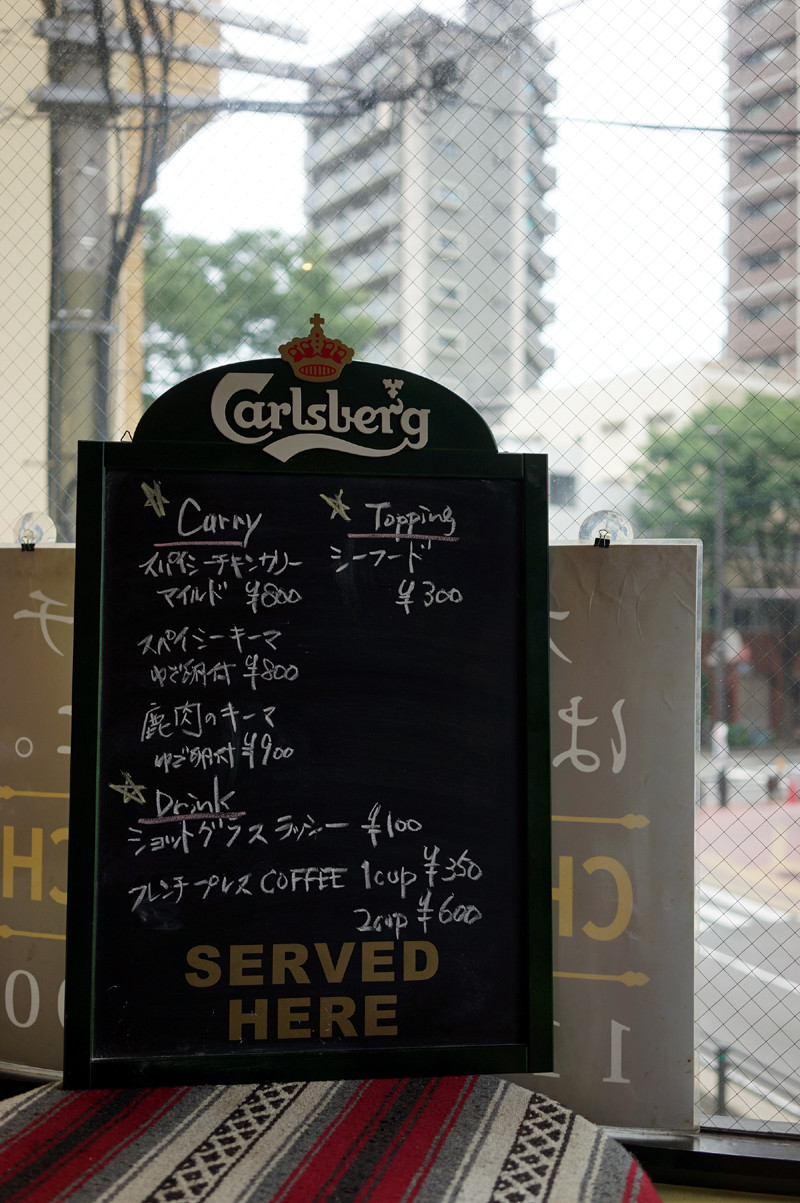 Carlsberg
Curry
スパイシーチキンカリー
マイルド ¥800
スパイシーキーマ
ゆで卵付 ¥800
鹿肉のキーマ
ゆで卵付 ¥900
Topping
シーフード
¥300
Drink
ショットグラスラッシー ¥100
フレンチプレス COFFEE 1cup ¥350
2cup ¥600
SERVED
HERE